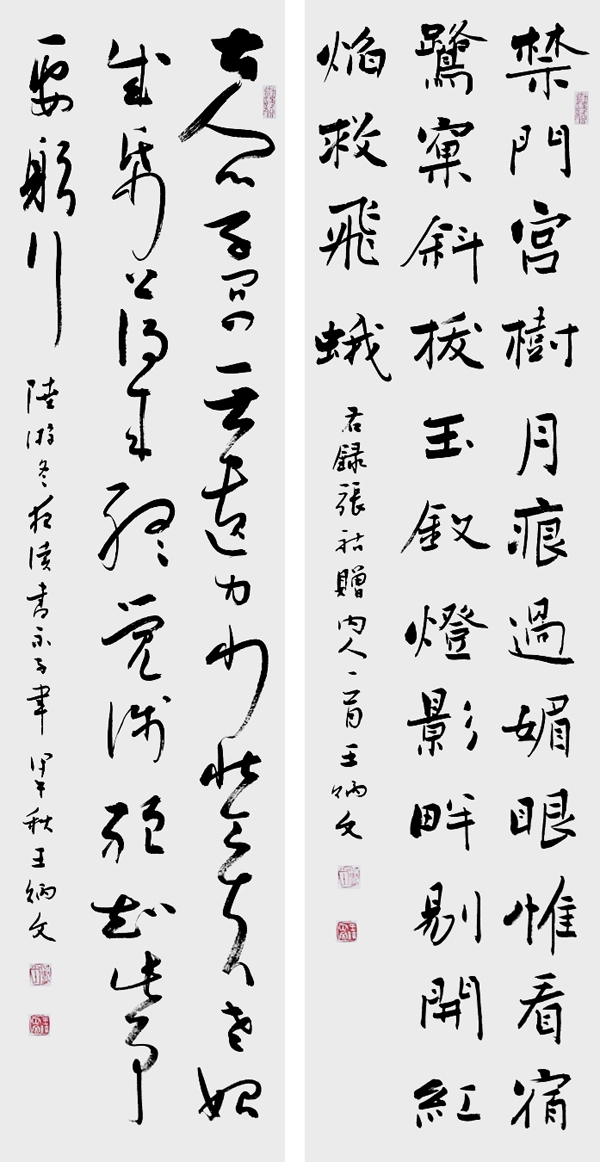 禁門宮樹月痕過媚眼惟看宿
鷺窠斜拔玉釵燈影畔剔開紅
焰救飛蛾
右錄張祜贈内人一首王炳文
古人學問無遺力少壯工夫老始
成紙上得來終覺淺絕知此事
要躬行
陸游冬夜讀書示子聿甲午秋王炳文